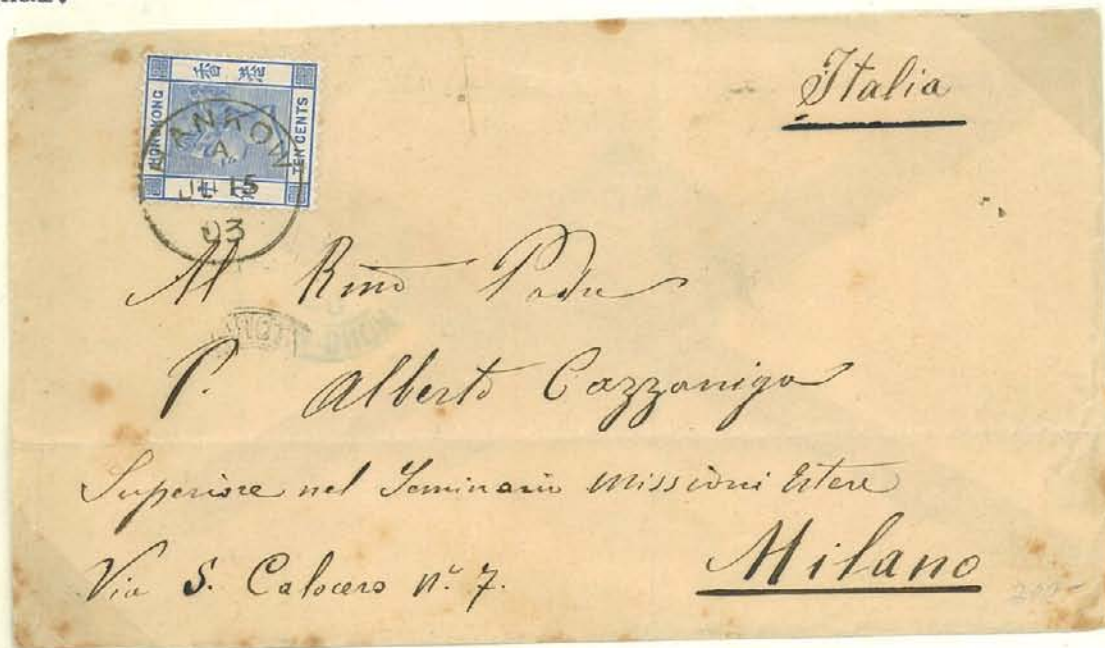 香港
HONGKONG
TEN CENTS
HANKOW
A
15
03
Italia
Al Rmo Padre
P. Alberto Cazzaniga
Superiore nel Seminario Missioni Estere
Via S. Calocero No. 7.
Milano